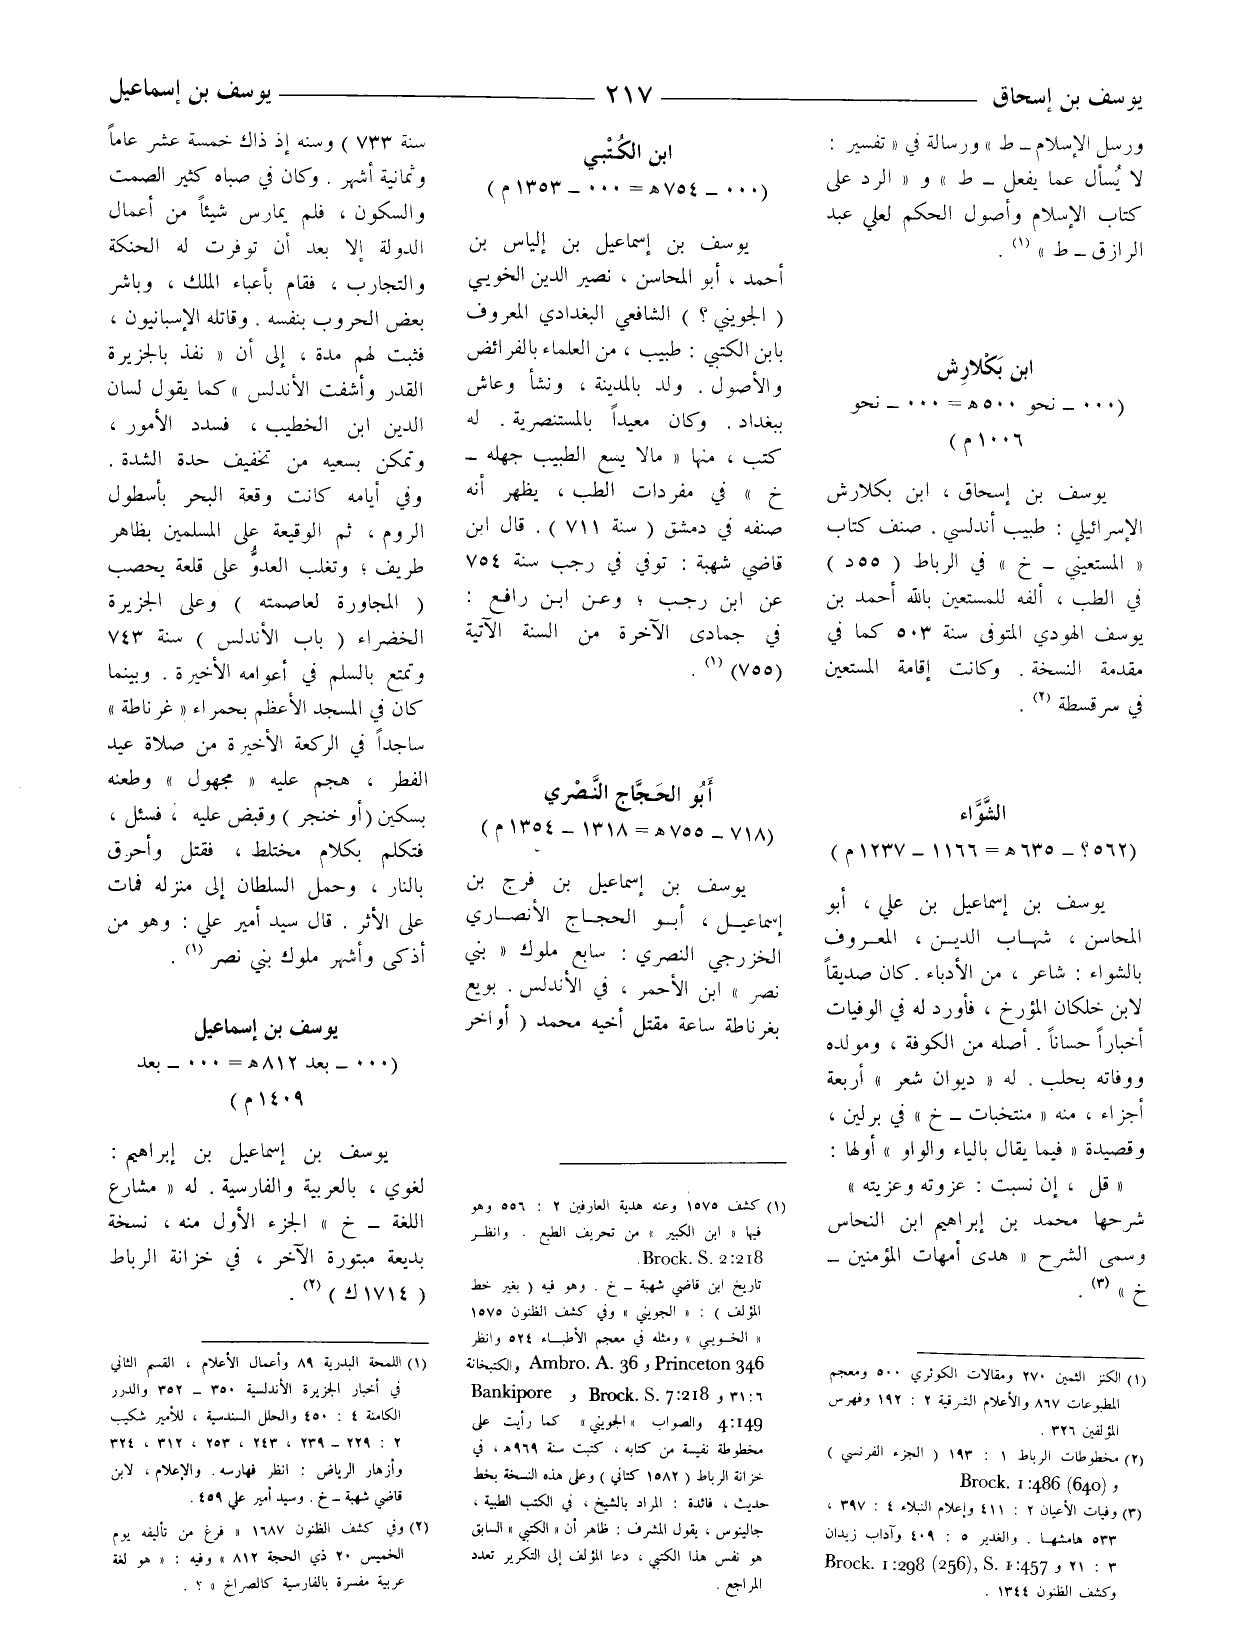 يوسف بن إسحاق ـــ ٢١٧ ـــ يوسف بن إسماعيل
ورسل الإسلام ـ ط » ورسالة في « تفسير :
لا يُسأل عما يفعل ـ ط » و « الرد على
كتاب الإسلام وأصول الحكم لعلي عبد
الرازق ـ ط » (١) .
ابن بَكْلارِش
(٠٠٠ ـ نحو ٥٠٠ هـ = ٠٠٠ ـ نحو
١٠٠٦ م)
يوسف بن إسحاق ، ابن بكلارش
الإسرائيلي : طبيب أندلسي . صنف كتاب
« المستعيني ـ خ » في الرباط ( ٥٥ د )
في الطب ، ألفه للمستعين بالله أحمد بن
يوسف الهودي المتوفى سنة ٥٠٣ كما في
مقدمة النسخة . وكانت إقامة المستعين
في سرقسطة (٢) .
الشَّوَّاء
(٥٦٢؟ ـ ٦٣٥ هـ = ١١٦٦ ـ ١٢٣٧ م)
يوسف بن إسماعيل بن علي ، أبو
المحاسن ، شهاب الدين ، المعروف
بالشواء : شاعر ، من الأدباء . كان صديقاً
لابن خلكان المؤرخ ، فأورد له في الوفيات
أخباراً حساناً . أصله من الكوفة ، ومولده
ووفاته بحلب . له « ديوان شعر » أربعة
أجزاء ، منه « منتخبات ـ خ » في برلين ،
وقصيدة « فيما يقال بالياء والواو » أولها :
« قل ، إن نسبت : عزوته وعزيته »
شرحها محمد بن إبراهيم ابن النحاس
وسمى الشرح « هدى أمهات المؤمنين ـ
خ » (٣) .
(١) الكنز الثمين ٢٧٠ ومقالات الكوثري ٥٠٠ ومعجم
المطبوعات ٨٦٧ والأعلام الشرقية ٢ : ١٩٢ وفهرس
المؤلفين ٣٢٦ .
(٢) مخطوطات الرباط ١ : ١٩٣ ( الجزء الفرنسي )
و Brock. 1:486 (640)
(٣) وفيات الأعيان ٢ : ٤١١ وإعلام النبلاء ٤ : ٣٩٧ ،
٥٣٣ هامشها . والغدير ٥ : ٤٠٩ وآداب زيدان
٣ : ٢١ و Brock. 1:298 (256), S. 1:457
وكشف الظنون ١٣٤٤ .
ابن الكُتْبي
(٠٠٠ ـ ٧٥٤ هـ = ٠٠٠ ـ ١٣٥٣ م)
يوسف بن إسماعيل بن إلياس بن
أحمد ، أبو المحاسن ، نصير الدين الخويي
( الجويني ؟ ) الشافعي البغدادي المعروف
بابن الكتبي : طبيب ، من العلماء بالفرائض
والأصول . ولد بالمدينة ، ونشأ وعاش
ببغداد . وكان معيداً بالمستنصرية . له
كتب ، منها « مالا يسع الطبيب جهله ـ
خ » في مفردات الطب ، يظهر أنه
صنفه في دمشق ( سنة ٧١١ ) . قال ابن
قاضي شهبة : توفي في رجب سنة ٧٥٤
عن ابن رجب ؛ وعن ابن رافع :
في جمادى الآخرة من السنة الآتية
(٧٥٥) (١) .
أَبُو الحَجَّاج النَّصْري
(٧١٨ ـ ٧٥٥ هـ = ١٣١٨ ـ ١٣٥٤ م)
يوسف بن إسماعيل بن فرج بن
إسماعيل ، أبو الحجاج الأنصاري
الخزرجي النصري : سابع ملوك « بني
نصر » ابن الأحمر ، في الأندلس . بويع
بغرناطة ساعة مقتل أخيه محمد ( أواخر
(١) كشف ١٥٧٥ وعنه هدية العارفين ٢ : ٥٥٦ وهو
فيها « ابن الكبير » من تحريف الطبع . وانظر
Brock. S. 2:218.
تاريخ ابن قاضي شهبة ـ خ . وهو فيه ( بغير خط
المؤلف ) : « الجويني » وفي كشف الظنون ١٥٧٥
« الخويي » ومثله في معجم الأطباء ٥٢٤ وانظر
Princeton 346 و Ambro. A. 36 والكتبخانة
٦:٣١ و Brock. S. 7:218 و Bankipore
4:149 والصواب « الجويني » كما رأيت على
مخطوطة نفيسة من كتابه ، كتبت سنة ٩٦٩ هـ ، في
خزانة الرباط ( ١٥٨٢ كتاني ) وعلى هذه النسخة بخط
حديث ، فائدة : المراد بالشيخ ، في الكتب الطبية ،
جالينوس ، يقول المشرف : ظاهر أن « الكتبي » السابق
هو نفس هذا الكتبي ، دعا المؤلف إلى التكرير تعدد
المراجع .
سنة ٧٣٣ ) وسنه إذ ذاك خمسة عشر عاماً
وثمانية أشهر . وكان في صباه كثير الصمت
والسكون ، فلم يمارس شيئاً من أعمال
الدولة إلا بعد أن توفرت له الحنكة
والتجارب ، فقام بأعباء الملك ، وباشر
بعض الحروب بنفسه . وقاتله الإسبانيون ،
فثبت لهم مدة ، إلى أن « نفذ بالجزيرة
القدر وأشفت الأندلس » كما يقول لسان
الدين ابن الخطيب ، فسدد الأمور ،
وتمكن بسعيه من تخفيف حدة الشدة .
وفي أيامه كانت وقعة البحر بأسطول
الروم ، ثم الوقيعة على المسلمين بظاهر
طريف ؛ وتغلب العدوُّ على قلعة يحصب
( المجاورة لعاصمته ) وعلى الجزيرة
الخضراء ( باب الأندلس ) سنة ٧٤٣
وتمتع بالسلم في أعوامه الأخيرة . وبينما
كان في المسجد الأعظم بحمراء « غرناطة »
ساجداً في الركعة الأخيرة من صلاة عيد
الفطر ، هجم عليه « مجهول » وطعنه
بسكين (أو خنجر ) وقبض عليه ، فسئل ،
فتكلم بكلام مختلط ، فقتل وأحرق
بالنار ، وحمل السلطان إلى منزله فمات
على الأثر . قال سيد أمير علي : وهو من
أذكى وأشهر ملوك بني نصر (١) .
يوسف بن إسماعيل
(٠٠٠ ـ بعد ٨١٢ هـ = ٠٠٠ ـ بعد
١٤٠٩ م)
يوسف بن إسماعيل بن إبراهيم :
لغوي ، بالعربية والفارسية . له « مشارع
اللغة ـ خ » الجزء الأول منه ، نسخة
بديعة مبتورة الآخر ، في خزانة الرباط
( ١٧١٤ ك ) (٢) .
(١) اللمحة البدرية ٨٩ وأعمال الأعلام ، القسم الثاني
في أخبار الجزيرة الأندلسية ٣٥٠ ـ ٣٥٢ والدرر
الكامنة ٤ : ٤٥٠ والحلل السندسية ، للأمير شكيب
٢ : ٢٢٩ ـ ٢٣٩ ، ٢٤٣ ، ٢٥٣ ، ٣١٢ ، ٣٢٤
وأزهار الرياض : انظر فهارسه . والإعلام ، لابن
قاضي شهبة ـ خ . وسيد أمير علي ٤٥٩ .
(٢) وفي كشف الظنون ١٦٨٧ « فرغ من تأليفه يوم
الخميس ٢٠ ذي الحجة ٨١٢ » وفيه : « هو لغة
عربية مفسرة بالفارسية كالصراح » .